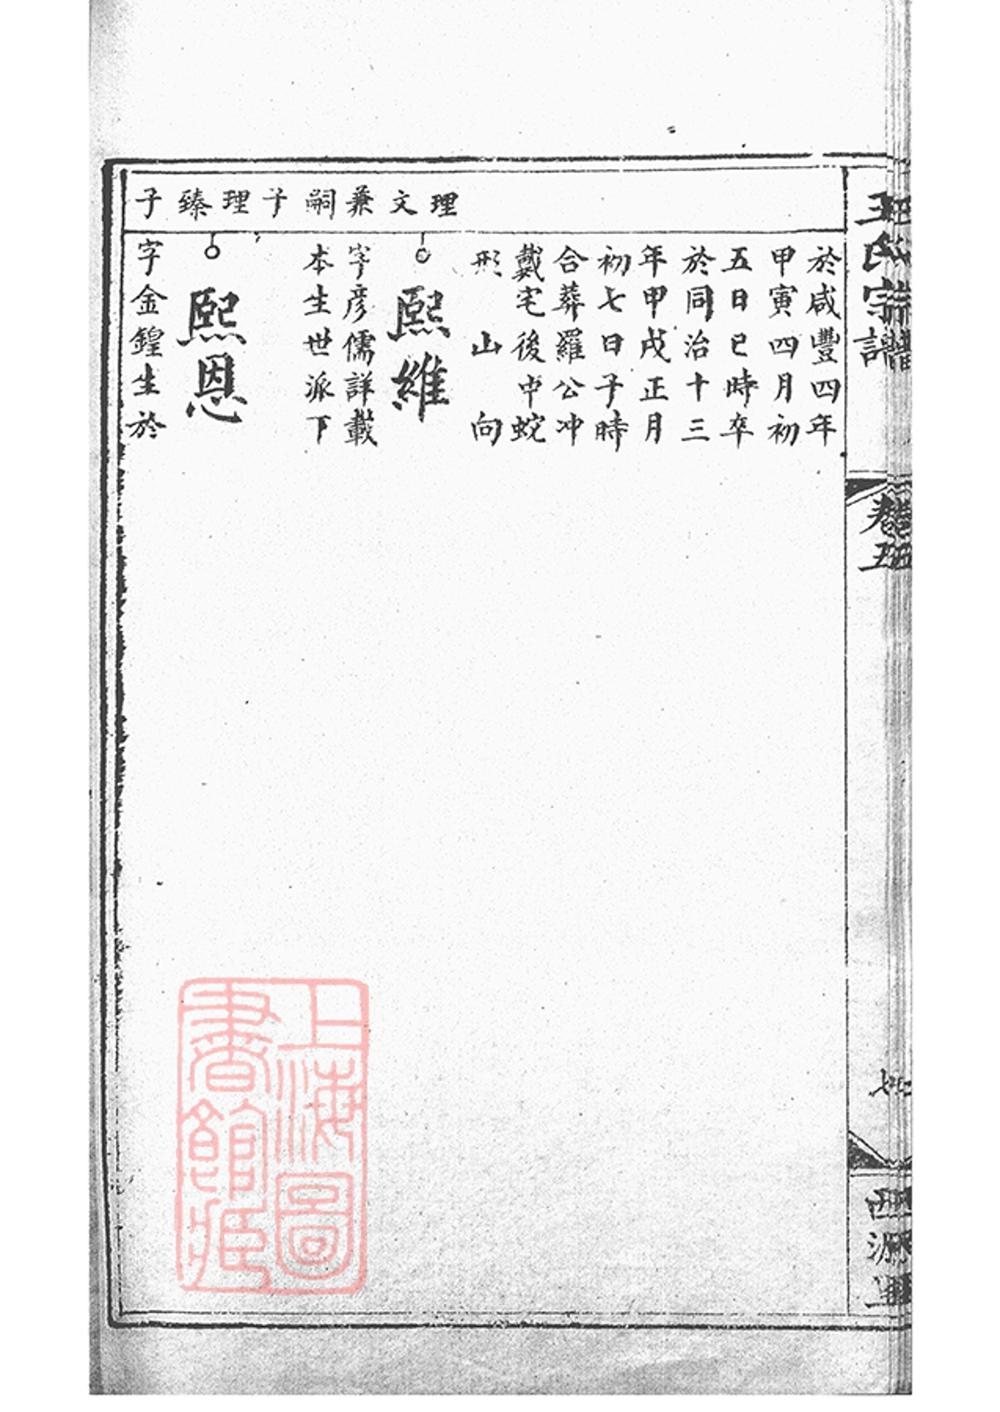 王氏宗譜
卷五
七
於咸豐四年
甲寅四月初
五日巳時卒
於同治十三
年甲戌正月
初七日子時
合葬羅公冲
戴宅後中蛇
形山向
理文兼嗣子
熙維
字彥儒詳載
本生世派下
理臻子
熙恩
字金鍠生於
上海圖
書館藏